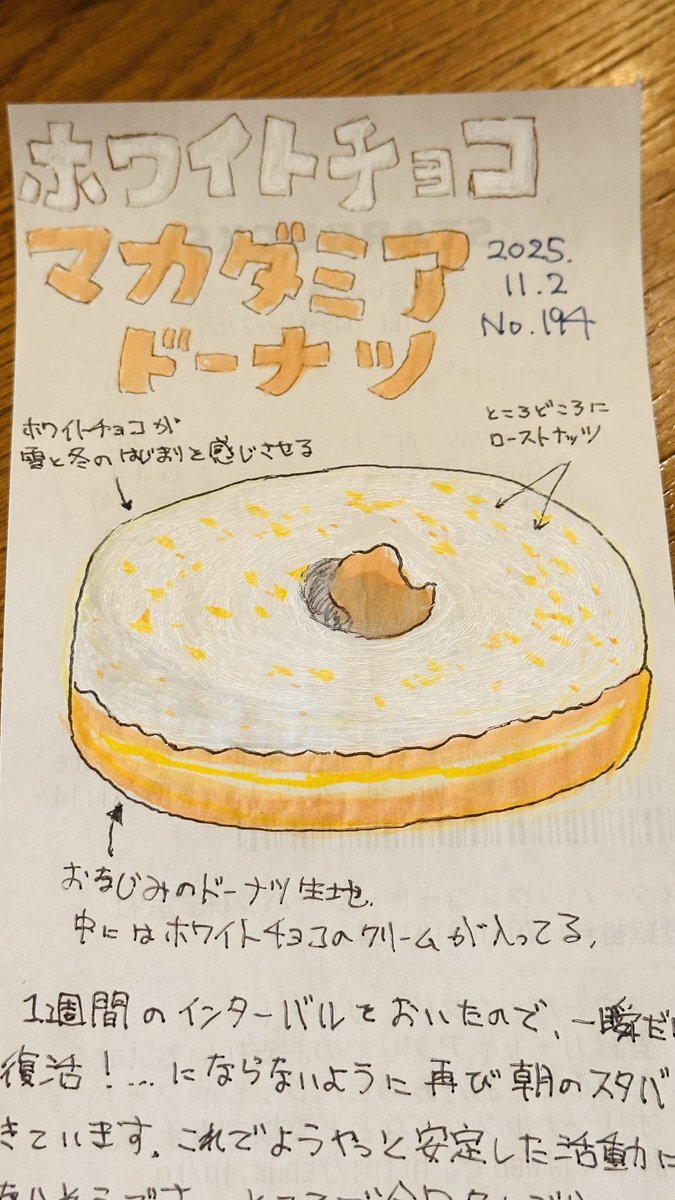 ホワイトチョコ
マカダミア
ドーナツ
2025.
11.2
No.194
ホワイトチョコが
雪と冬のはじまりを感じさせる
ところどころに
ローストナッツ
おなじみのドーナツ生地。
中にはホワイトチョコのクリームが入ってる。
1週間のインターバルをおいたので、一瞬だけ
復活!…にならないように再び朝のスタバ
きています。これでようやっと安定した活動に